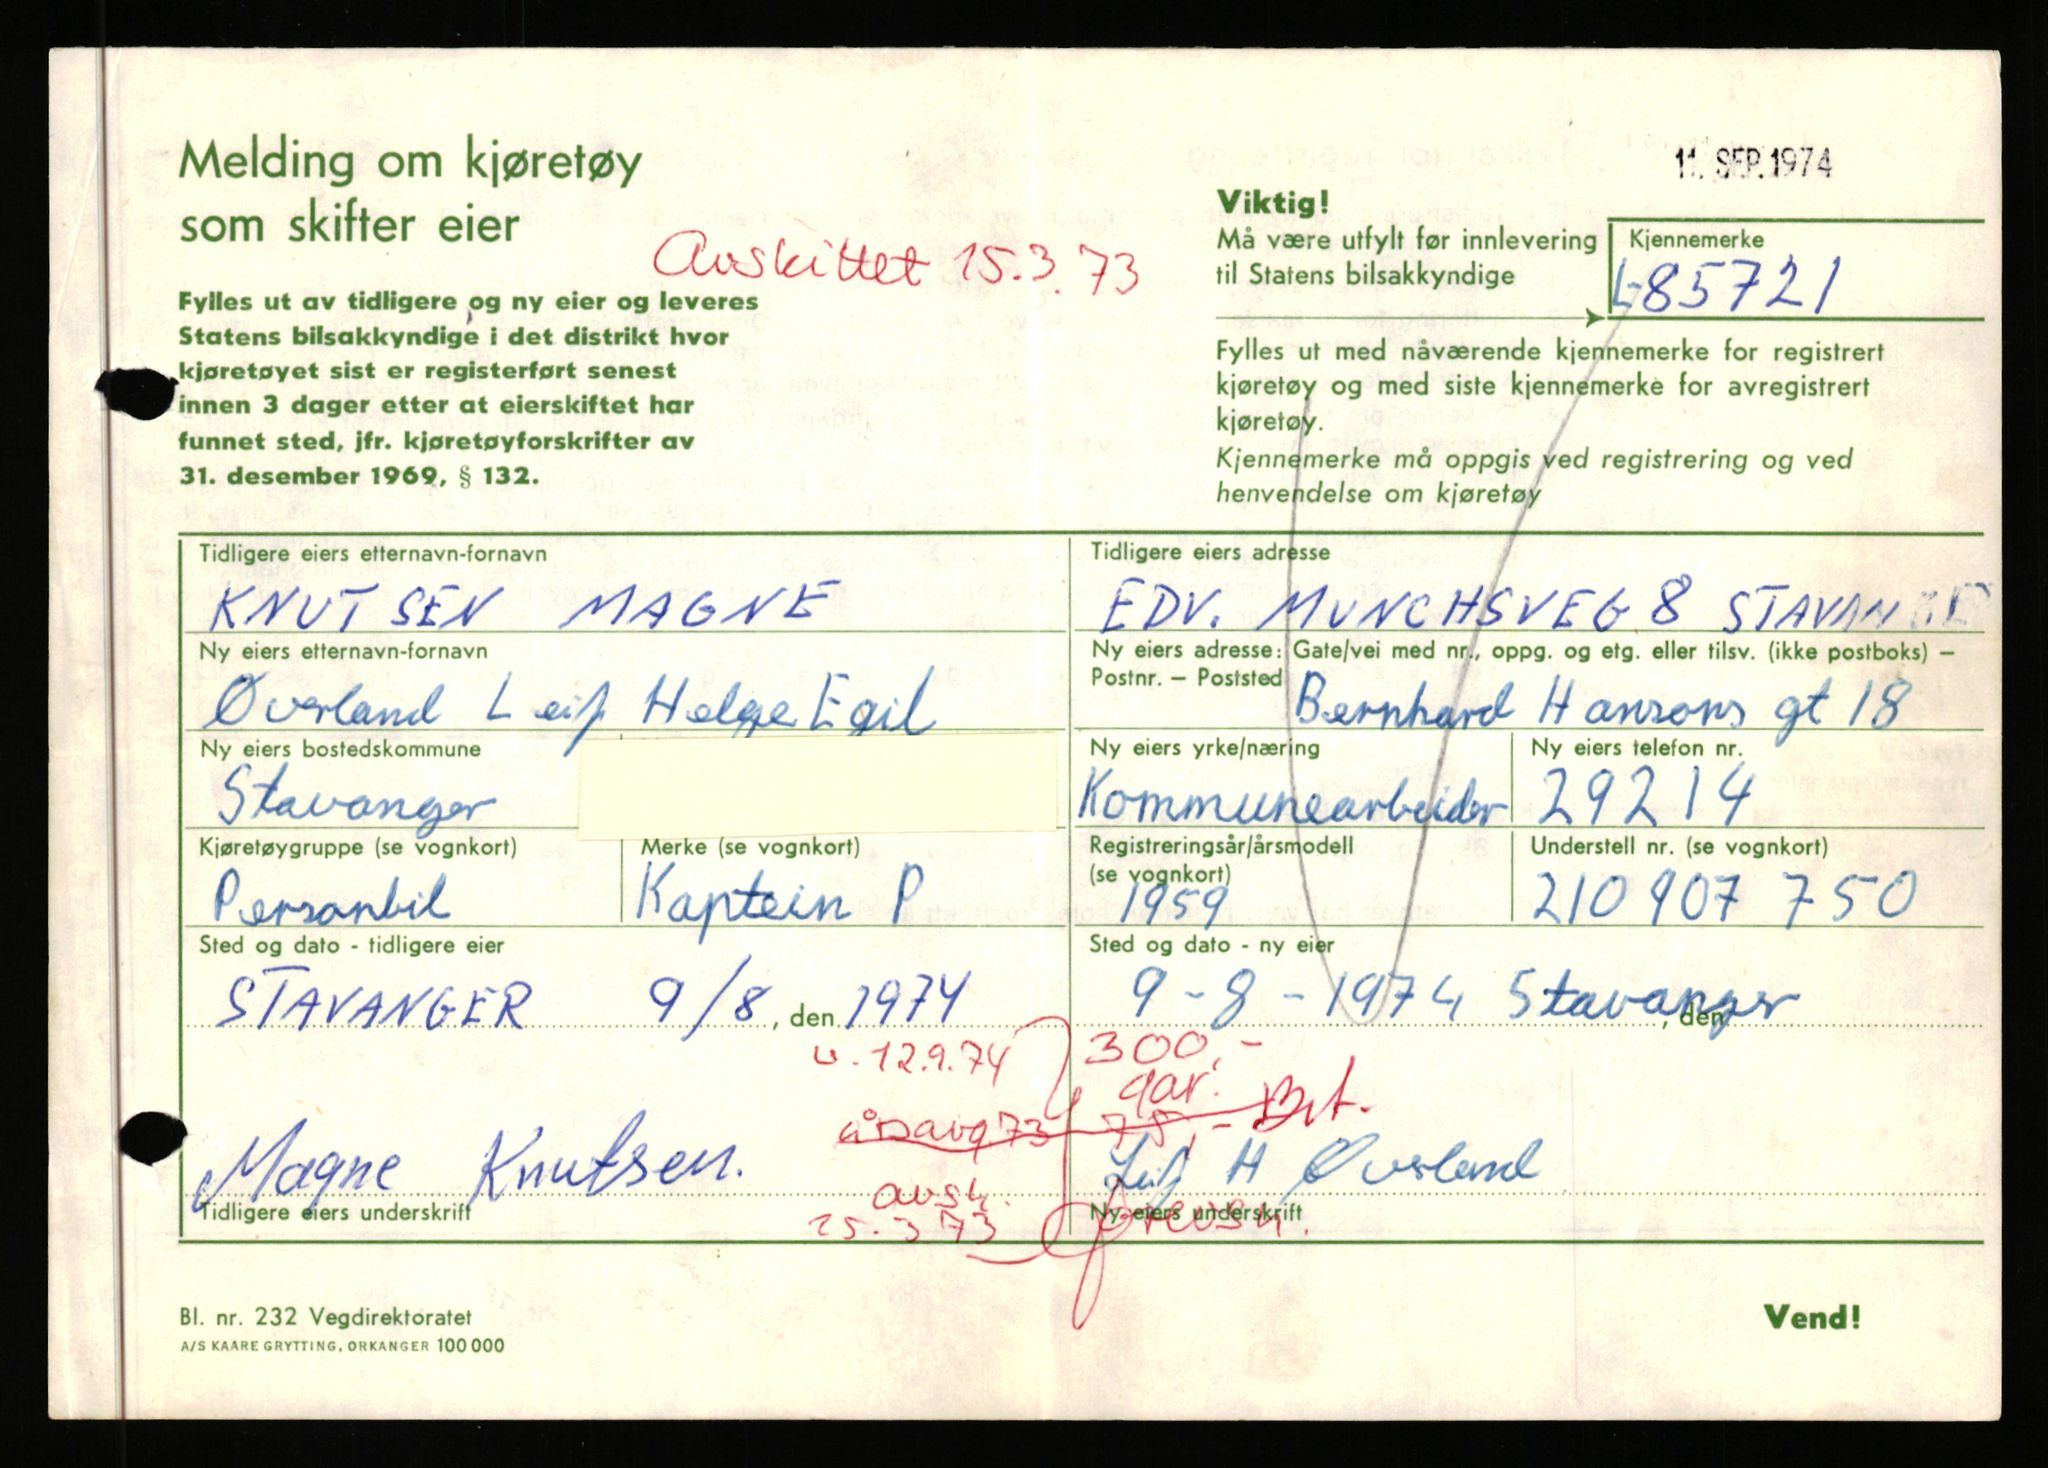 Melding om kjøretøy
som skifter eier
11. SEP. 1974
Avskiltet 15.3.73
Viktig!
Må være utfylt før innlevering
til Statens bilsakkyndige
Kjennemerke
L-85721
Fylles ut av tidligere og ny eier og leveres
Statens bilsakkyndige i det distrikt hvor
kjøretøyet sist er registerført senest
innen 3 dager etter at eierskiftet har
funnet sted, jfr. kjøretøyforskrifter av
31. desember 1969, § 132.
Fylles ut med nåværende kjennemerke for registrert
kjøretøy og med siste kjennemerke for avregistrert
kjøretøy.
Kjennemerke må oppgis ved registrering og ved
henvendelse om kjøretøy
Tidligere eiers etternavn-fornavn
KNUTSEN MAGNE
Tidligere eiers adresse
EDV. MUNCHSVEG 8 STAVANGER
Ny eiers etternavn-fornavn
Øverland Leif Helge Egil
Ny eiers adresse: Gate/vei med nr., oppg. og etg. eller tilsv. (ikke postboks) –
Postnr. – Poststed
Bernhard Hansons gt 18
Ny eiers bostedskommune
Stavanger
Ny eiers yrke/næring
Kommunearbeider
Ny eiers telefon nr.
29214
Kjøretøygruppe (se vognkort)
Personbil
Merke (se vognkort)
Kaptein P
Registreringsår/årsmodell
(se vognkort)
1959
Understell nr. (se vognkort)
210907750
Sted og dato - tidligere eier
STAVANGER 9/8, den 1974
Sted og dato - ny eier
9-8-1974 Stavanger, den
v. 12.9.74
300,-
gar.
årsavg 73 78,-
avsk.
15.3 73
Magne Knutsen.
Tidligere eiers underskrift
Leif H Øverland
Ny eiers underskrift
Bl. nr. 232 Vegdirektoratet
A/S KAARE GRYTTING, ORKANGER 100 000
Vend!